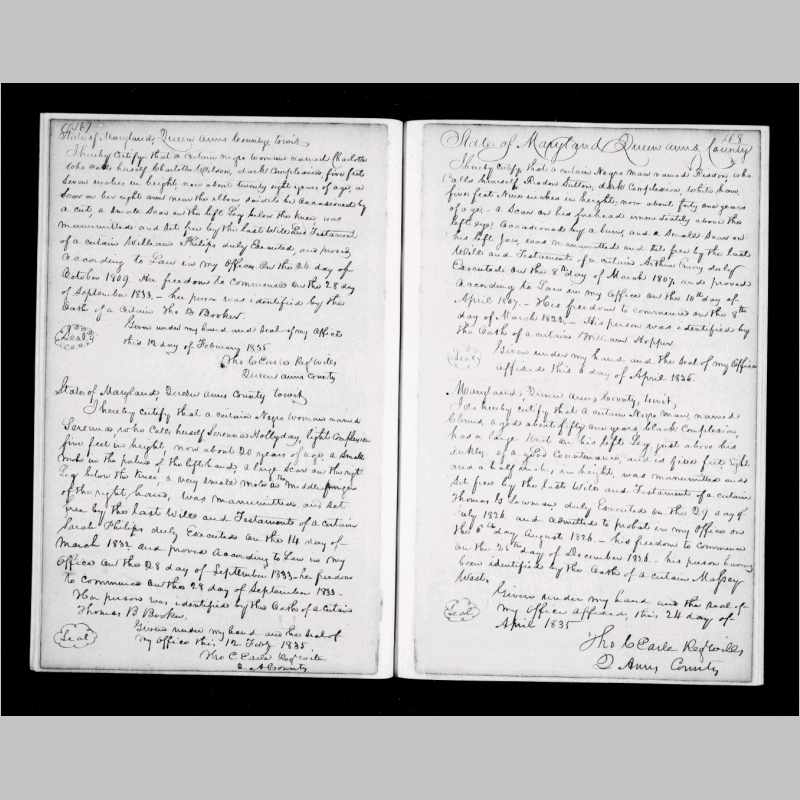 State of Maryland, Queen Anns County, towit,
I hereby Certify that a certain Negro woman named Charlotte
who calls herself Charlotte Wilson, dark Complexion, five feet
seven inches in height, now about twenty eight years of age, a
Scar on her right arm near the elbow occasioned by
a cut, a Small Scar on the left Leg below the knee, was
manumitted and set free by the last Will and Testament
of a certain William Philips duly Executed and proved
According to Law in my Office On the 26 day of
October 1809. Her freedom to Commence On the 28 day
of September 1833 - her person was identified by the
Oath of a Certain Tho B Booker.
Given under my hand and Seal of my Office
Seal
this 12 day of February 1835
Tho C Earle Regr Wills
Queen Anns County
State of Maryland Queen Anns County towit,
I hereby certify that a certain Negro Woman named
Serena, who Calls herself Serena Hollyday, light Complexion
five feet in height, now about 20 years of age, a Small
mole in the palm of the left hand, a large Scar on the right
Leg below the knee, a very small mole on the middle finger
of the right hand, was manumitted and Set
free by the last Will and Testament of a certain
Sarah Philips duly Executed on the 14 day of
March 1832 and proved According to Law in my
Office On the 28 day of September 1833 her freedom
to Commence On the 28 day of September 1833 -
Her person was identified by the Oath of a Certain
Thomas B Booker.
Given under my hand and the Seal of
Seal
my Office this 12 Feby 1835
Tho C Earle Regr Wills
Q A County
118
State of Maryland Queen Anns County
I hereby Certify that a Certain Negro Man named Reason, who
Calls himself Reason Sutton, dark Complexion, white hair,
five feet Nine inches in height, now about forty one years
of age - a Scar on his forehead immediately above the
left eye, Occasioned by a burn, and a Small Scar on
his left Jaw, was manumitted and set free by the last
Will and Testament of a certain Arthur Emory duly
Executed On the 8th day of March 1807 and proved
According to Law in my Office On the 10th day of
April 1807. - His freedom to commence on the 8th
day of March 1823. - His person was identified by
the Oath of a certain William Hopper
Given under my hand and the Seal of my Office
Seal
affixed this 6 day of April 1835.
Maryland, Queen Anns County, towit,
I do hereby certify that a Certain Negro Man, named
aged about fifty one years, black Complexion,
has a large Knot on his left Leg just above his
ankle, of a good Countenance, and is five feet, eight
and a half inches, in height, was manumitted and
Set free by the last Will and Testament of a certain
Thomas B Lawman duly Executed on the 29 day of
July 1826 and admitted to probat in my Office on
the 5th day August 1826 - his freedom to commence
on the 25th day of December 1834 - his person having
been identified by the Oath of a Certain Massey
Given under my hand and the Seal of
Seal
my Office affixed, this 24 day of
April 1835
Tho C Earle Regr Wills
Q Anns County